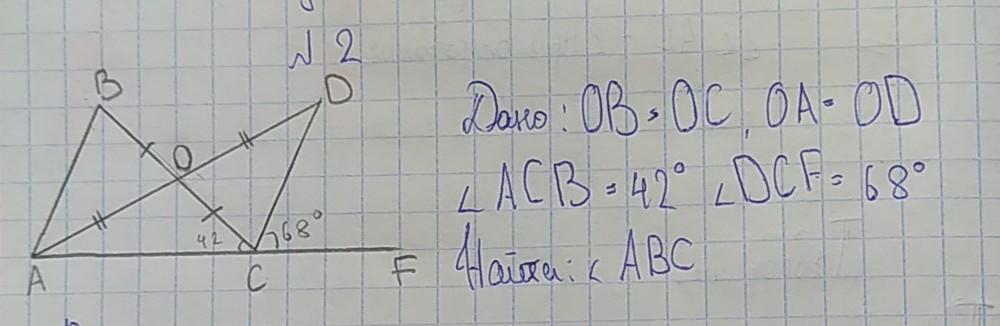 № 2
B
D
O
42
68°
A
C
F
Дано: OB = OC, OA = OD
∠ ACB = 42° ∠DCF = 68°
Найти: < ABC